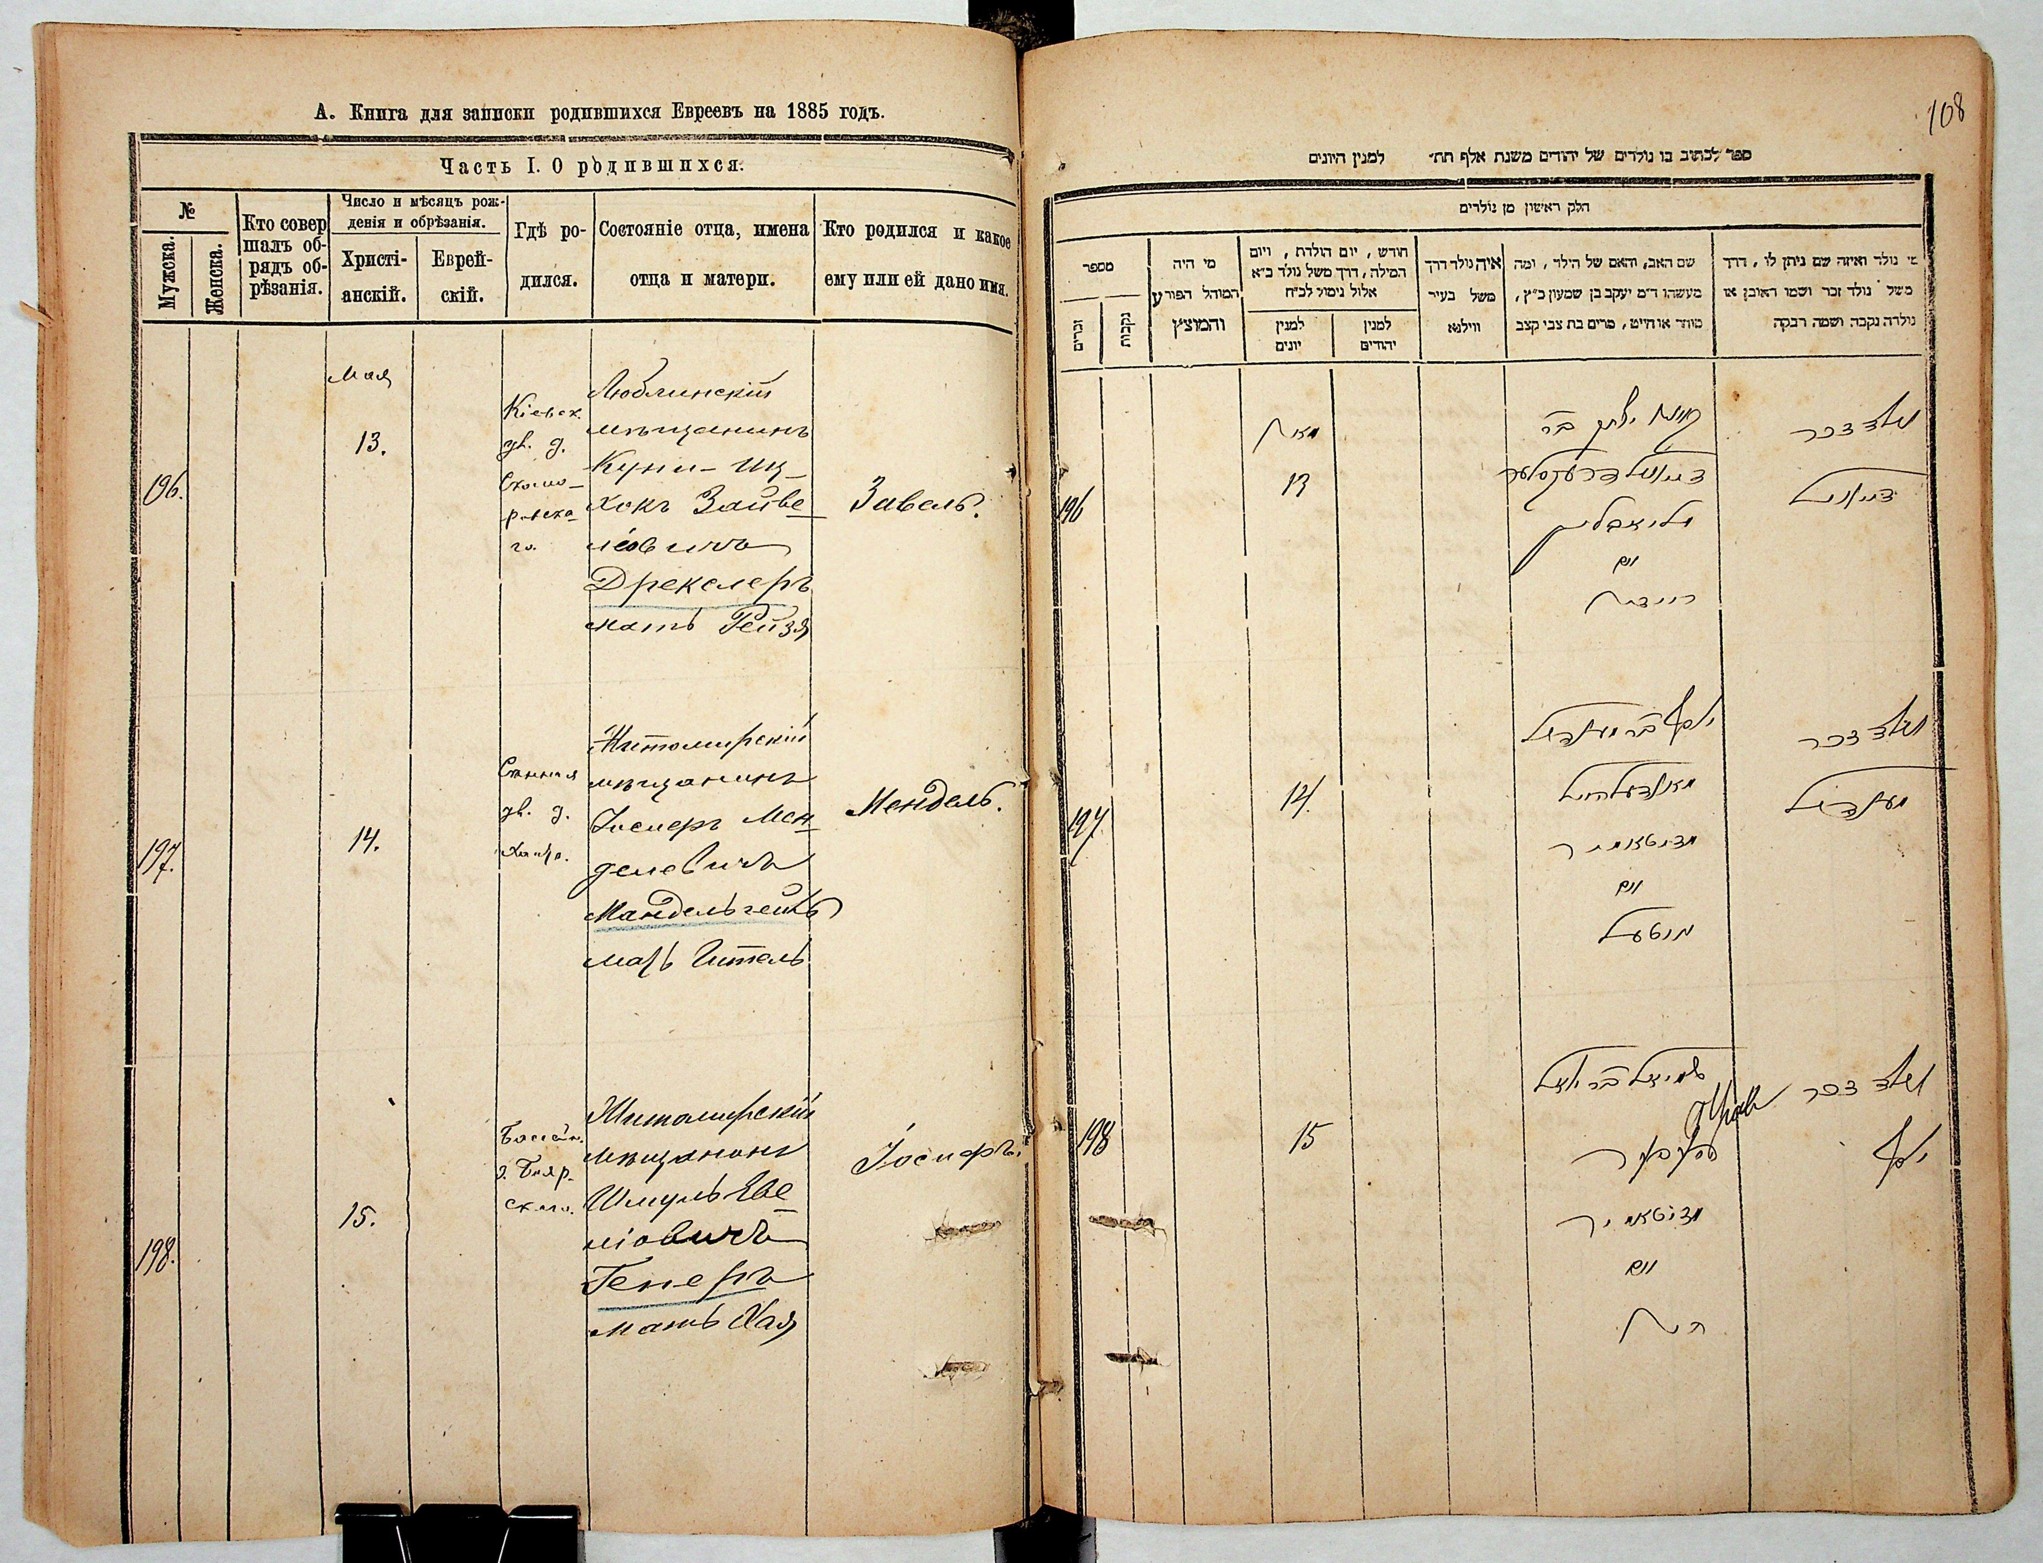 А. Книга для записки родившихся Евреевъ на 1885 годъ.
Часть I. О родившихся.
№
Мужска.
Женска.
Кто совер
шалъ об-
рядъ об-
рѣзанія.
Число и мѣсяцъ рож-
денія и обрѣзанія.
Христі-
анскій.
Еврей-
скій.
Гдѣ ро-
дился.
Состояніе отца, имена
отца и матери.
Кто родился и какое
ему или ей дано имя.
196.
Мая
13.
Кіевск.
дв. д.
Люблинскій
мѣщанинъ
Куни-Иц-
хокъ Зайве-
леовичъ
Дрекслеръ
мать Рейзя
Завель.
197.
14.
Сѣнная
дв. д.
Житомирскій
мѣщанинъ
Іосифъ Мен-
делевичъ
Мандельгеймъ
мать Гитель
Мендель.
198.
15.
Бассейн.
д. Бояр-
скаго.
Житомирскій
мѣщанинъ
Шмуль Іве-
ліовичъ
Генеръ
мать Хая
Іосифъ.
108
ספר לכתוב בו נולדים של יהודים משנת אלף תת״ למנין היונים
חלק ראשון מן נולדים
מספר
זכרים
נקבות
מי היה
המוהל הפורע
והמוצץ
חודש, יום הולדת, ויום
המילה, דרך משל נולד כ״א
אלול נימול לכ״ח
למנין
יונים
למנין
יהודים
איה נולד דרך
משל בעיר
ווילנא
שם האב, והאם של הילד, ומה
מעשהו ד״מ יעקב בן שמעון כ״ץ,
סוחר או חייט, פרים בת צבי קצב
מי נולד ואיזה שם ניתן לו, דרך
משל נולד זכר ושמו ראובן או
נולדה נקבה ושמה רבקה
196
מאי
13
דרעקסלער
מלובלין
ואם
רייזא
נולד זכר
זייוויל
197
14.
יוסף בר מענדיל
מאנדעלהיים
מזיטאמיר
ואם
גיטעל
נולד זכר
מענדיל
198
15
מזיטאמיר
ואם
חיה
נולד זכר
יוסף